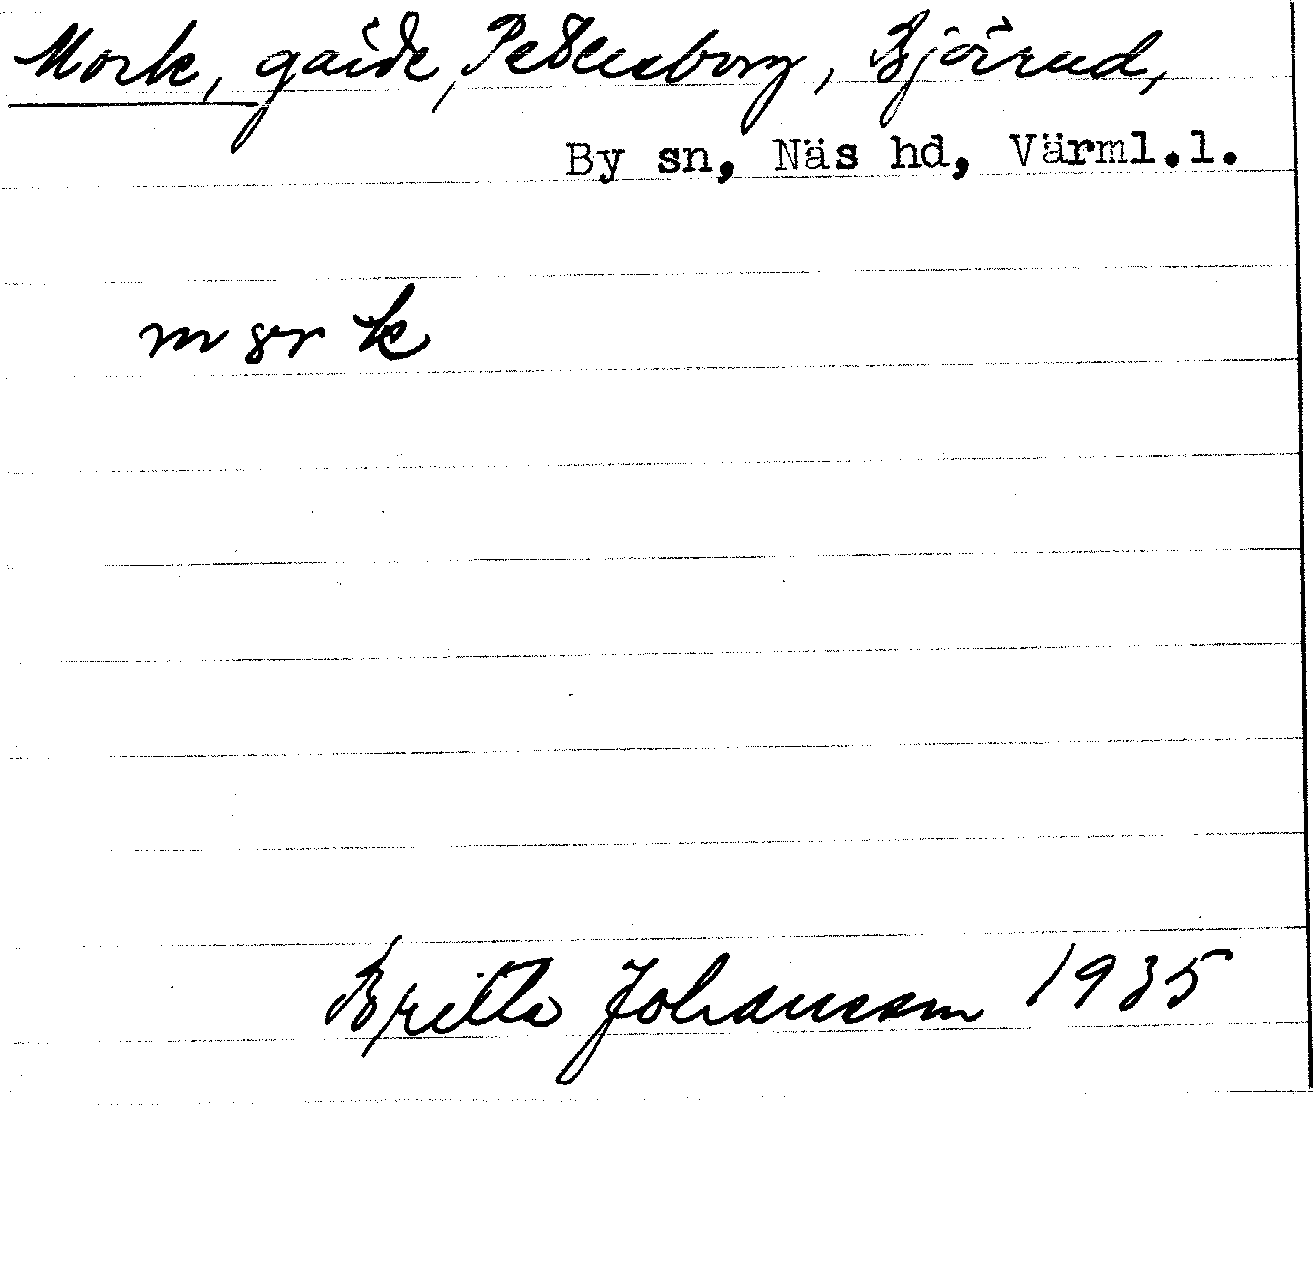 Mork, gärde, Petersborg, Björud,
By sn, Näs hd, Värml.l.
Britta Johansson 1935